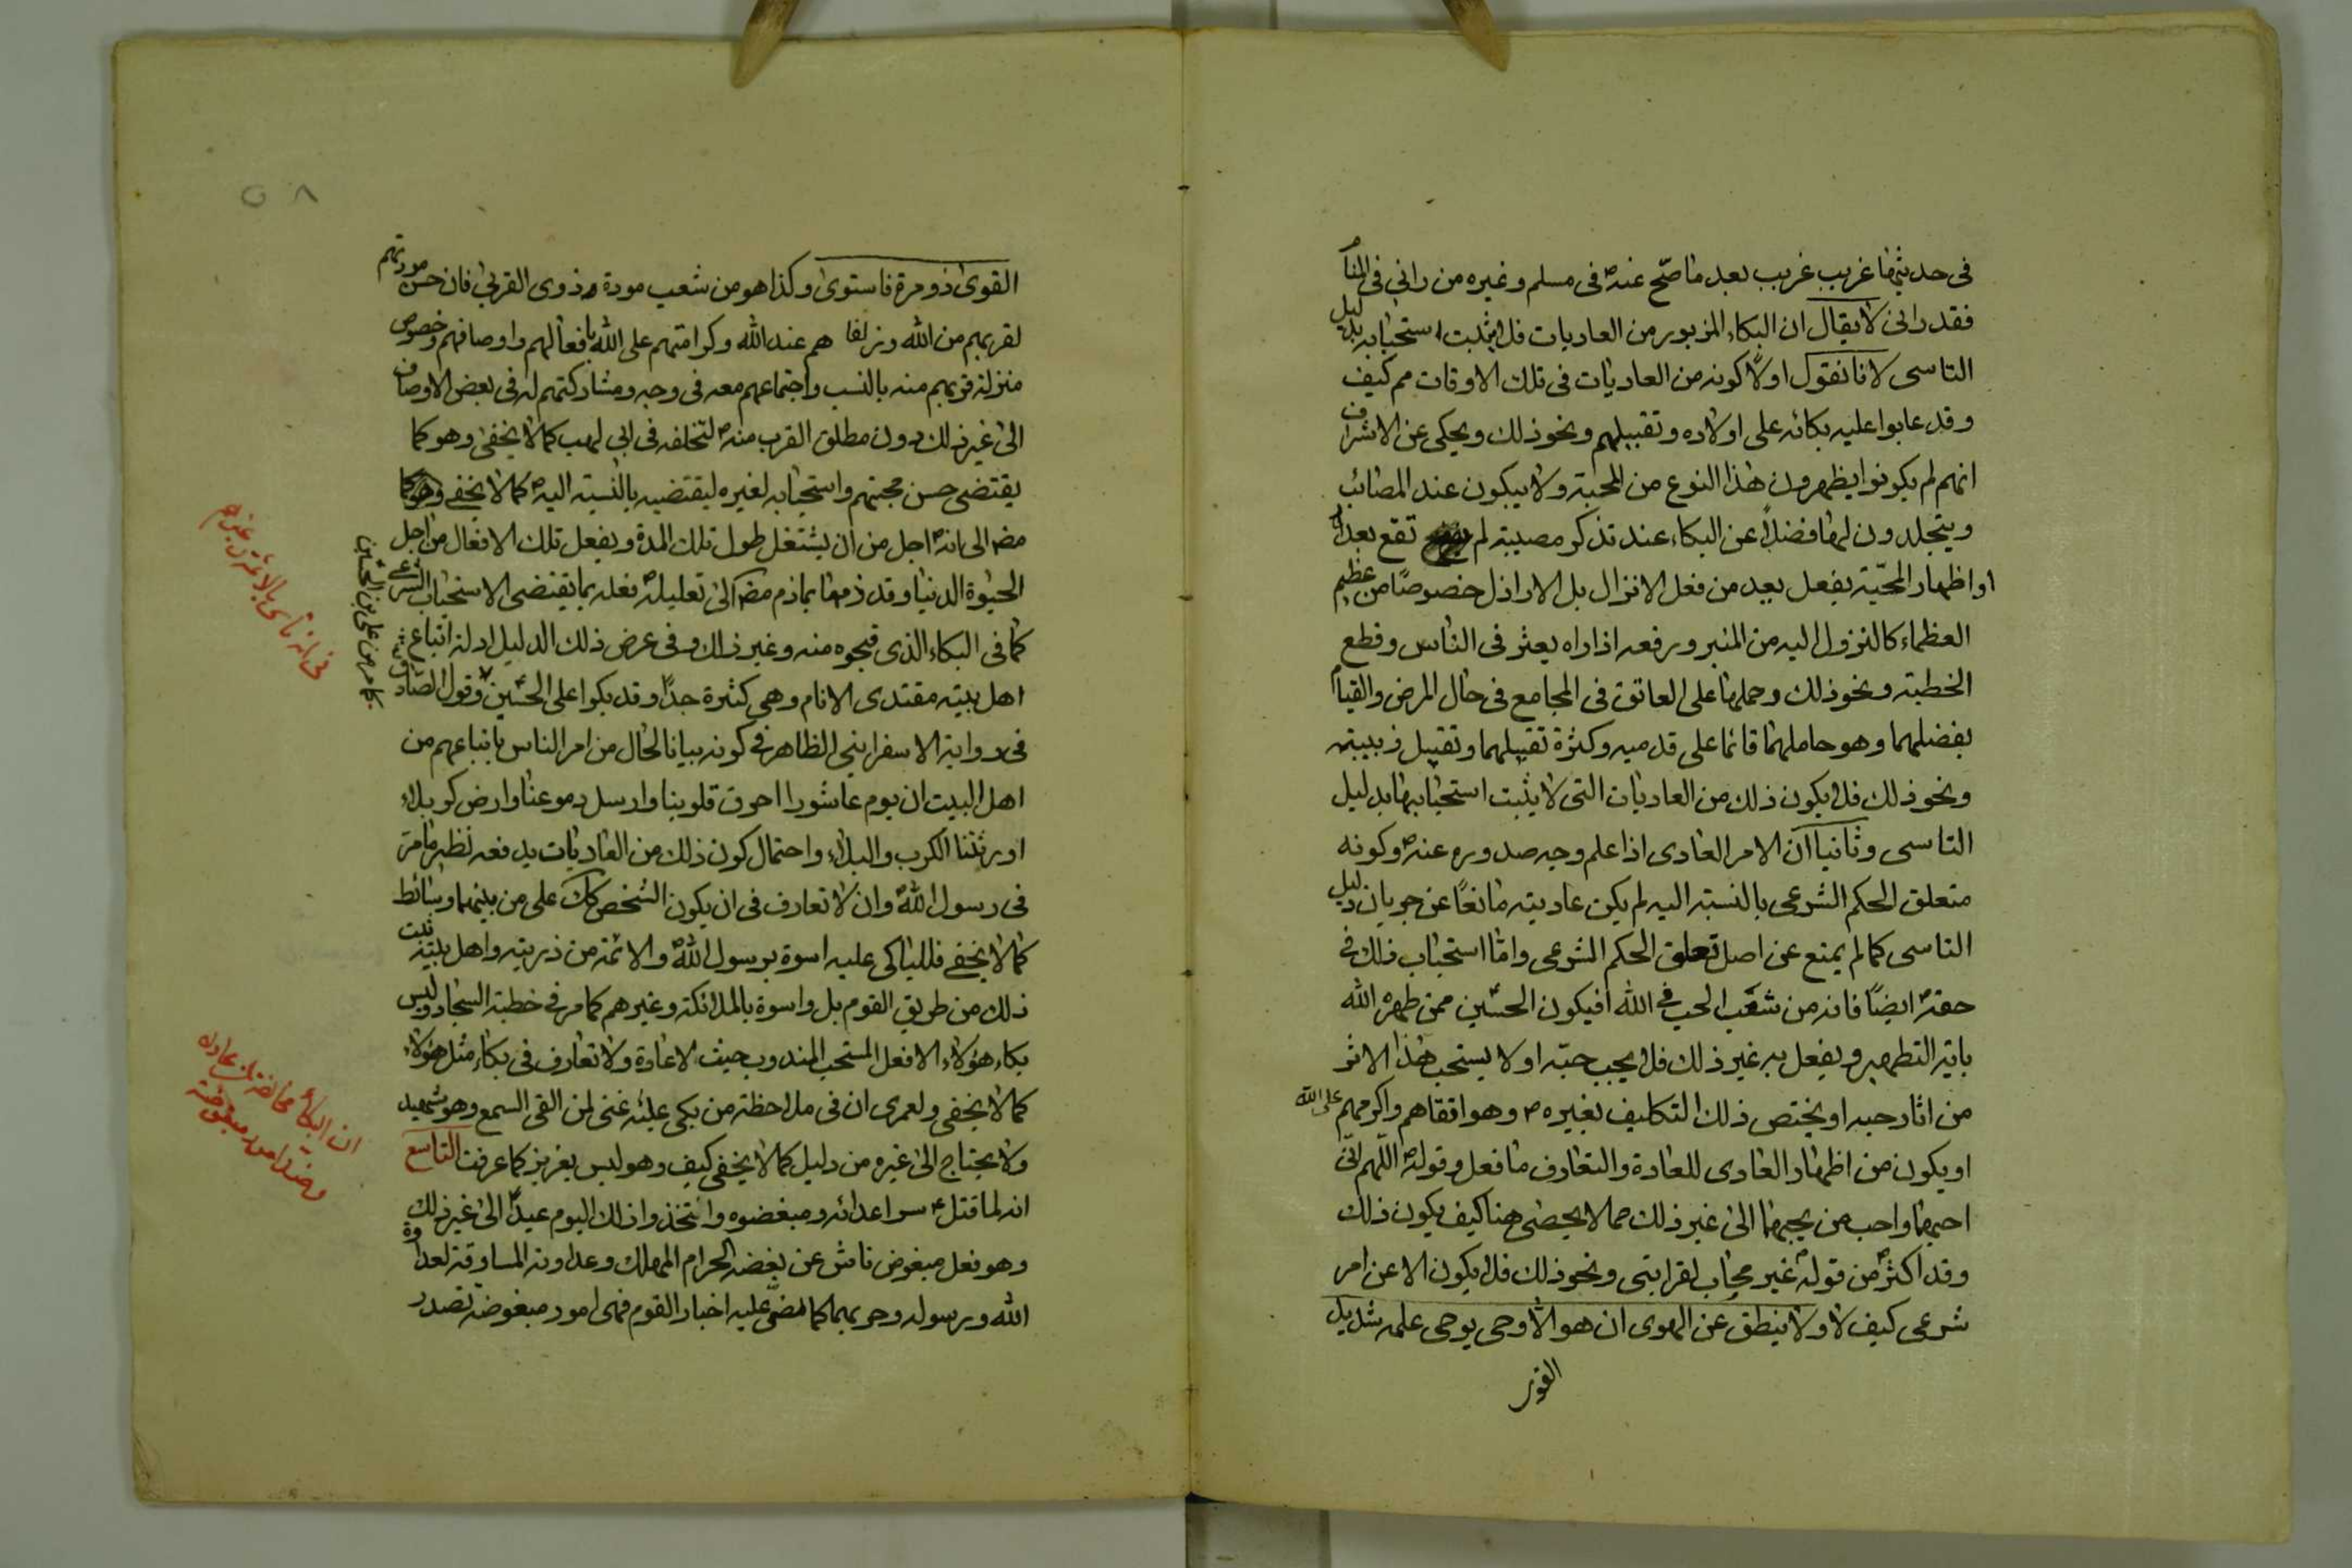 في حديثها غريب غريب بعد ما صحّ عنه ص في مسلم وغيره من راني في المنام
فقد راني لا يقال ان البكاء المزبور من العاديات فلا يثبت استحبابه بدليل
التاسى لانا نقول اولاً كونه من العاديات في تلك الاوقات مم كيف
وقد عابوا عليه بكائه على اولاده وتقبيلهم ونحو ذلك ويحكى عن الاشراف
انهم لم يكونوا يظهرون هذا النوع من المحبة ولا يبكون عند المصائب
ويتجلدون لها فضلاً عن البكاء عند تذكر مصيبة لم تقع بعد
او اظهار المحبّة بفعل يعد من فعل الانزال بل الاراذل خصوصًا من عظيم
العظماء كالنزول اليه من المنبر ورفعه اذا راه يعثر في الناس وقطع
الخطبة ونحو ذلك وحملهما على العاتق في المجامع في حال المرض والقيام
بفضلهما وهو حاملهما قائما على قدميه وكثرة تقبيلهما وتقبيل زبيبته
ونحو ذلك فلا يكون ذلك من العاديات التي لا يثبت استحبابها بدليل
التاسى وثانيا ان الامر العادى اذا علم وجه صدوره عنه ص وكونه
متعلق الحكم الشرعى بالنسبة اليه لم يكن عاديته مانعًا عن جريان دليل
التاسى كما لم يمنع عن اصل تعلق الحكم الشرعى واما استحباب ذلك في
حقه ص ايضًا فانه من شعب الحب في الله افيكون الحسين ممن طهره الله
باية التطهير ويفعل به غير ذلك فلا يجب حبّه او لا يستحب هذا الاثر
من اثار حبه او يختص ذلك التكليف بغيره ص وهو اتقاهم واكرمهم على الله
او يكون من اظهار العادى للعادة والتعارف ما فعل وقوله ص اللّهم انّى
احبهما واحب من يحبهما الى غير ذلك مما لا يحصى هنا كيف يكون ذلك
وقد اكثر ص من قوله ص غير محاب لقرابتى ونحو ذلك فلا يكون الا عن امر
شرعى كيف لا ولا ينطق عن الهوى ان هو الّا وحى يوحى علمه شديد
القوى
٥٨
القوى ذو مرة فاستوى وكذا هو من شعب مودة ذوى القربى فان حسن مودتهم
لقربهم من الله وزلفاهم عند الله وكرامتهم على الله بافعالهم واوصافهم وخصوص
منزلة قربهم منه بالنسب واجتماعهم معه في وجه ومشاركتهم له في بعض الاوصاف
الى غير ذلك دون مطلق القرب منه ص لتخلفه في ابى لهب كما لا يخفى وهو كما
يقتضى حسن محبتهم واستحبابه لغيره ليقتضيه بالنسبة اليه ص كما لا يخفى
مضى الى انه ص اجل من ان يشتغل طول تلك المدة ويفعل تلك الافعال من اجل
الحيوة الدنيا وقد ذمها بما ذم مضى الى تعليله ص فعله بما يقتضى الاستحباب الشرعى
كما في البكاء الذى قبحوه منه وغير ذلك وفى عرض ذلك الدليل ادلة اتباع
اهل بيته مقتدى الانام وهى كثيرة جدًا وقد بكوا على الحسين ع وقول الصادق
في رواية الاسفراينى الظاهر في كونه بيانا لحال من امر الناس باتباعهم من
اهل البيت ان يوم عاشورا احرق قلوبنا وارسل دموعنا وارض كربلا
اورثتنا الكرب والبلاء واحتمال كون ذلك من العاديات يدفعه نظير ما مرّ
في رسول الله ص وان لا تعارف في ان يكون الشخص كك على من بينهما وسائط
كما لا يخفى فللباكى عليه اسوة برسول الله ص والائمة من ذريته واهل بيته
ذلك من طريق القوم بل واسوة بالملائكة وغيرهم كما مر في خطبة السجاد وليس
بكاء هؤلاء الا فعل المستحب المندوب حيث لا عادة ولا تعارف في بكاء مثل هؤلاء
كما لا يخفى ولعمرى ان في ملاحظة من بكى عليه غنى لمن القى السمع وهو شهيد
ولا يحتاج الى غيره من دليل كما لا يخفى كيف وهو ليس بعزيز كما عرفت التاسع
انه لما قتل ع سر اعدائه ومبغضوه واتخذوا ذلك اليوم عيدًا الى غير ذلك
وهو فعل مبغوض ناش عن بغضه الحرام المهلك وعداوته المساوقة لعداوة
الله ورسوله وحربهما كما نص عليه اخبار القوم فهى امور مبغوضة تصدر
في انه تأسى بالائمة وغيرهم